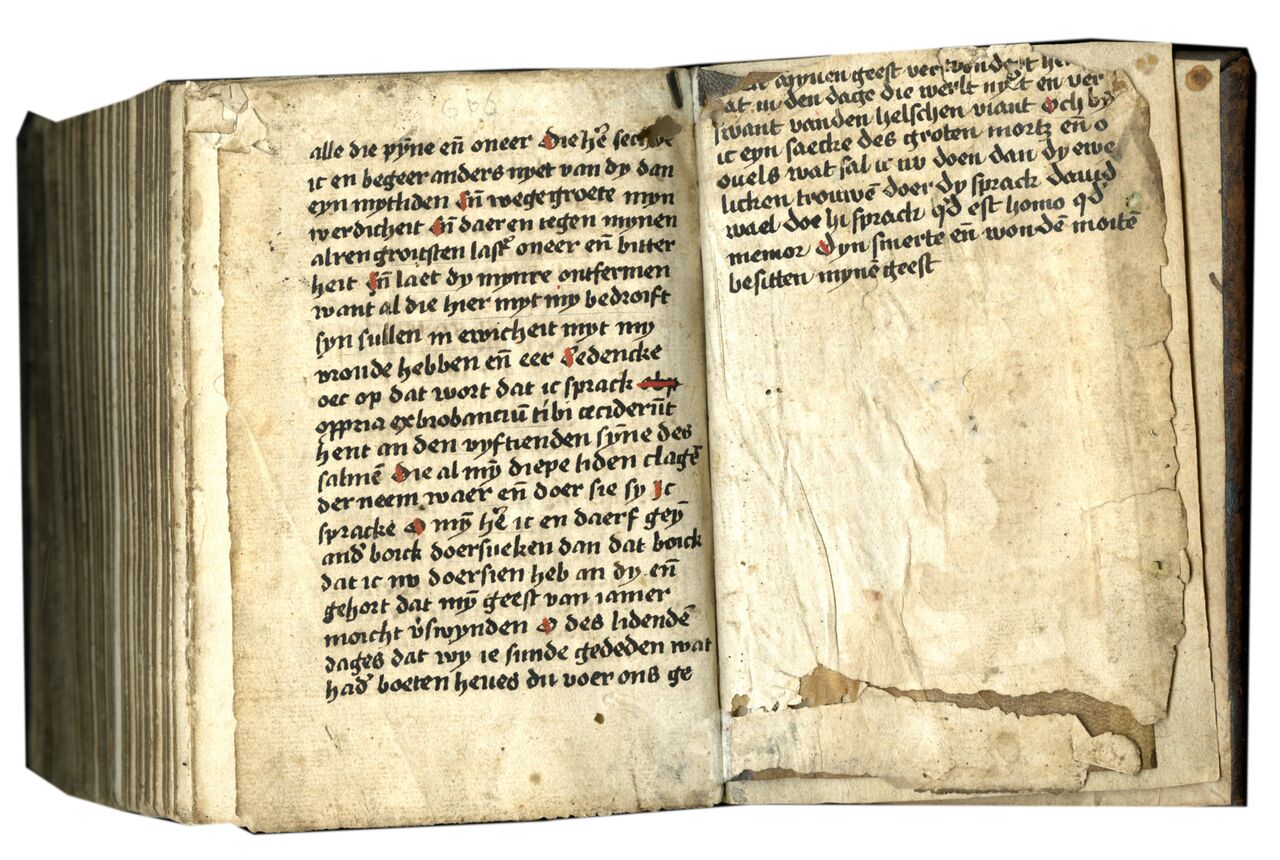 666
alle die pyne en̄ oneer Die he᷑
ic en begeer anders nyet van dy dan
eyn mytliden En̄ wege groete myn
werdicheit En̄ daer en tegen mynen
alren groitsten last oneer en̄ bitter
heit En̄ laet dy mynre ontfermen
want al die hier myt my bedroift
syn sullen in ewicheit myt my
vronde hebben en̄ eer Gedencke
oec op dat wort dat ic sprack
oppria exbrobanciū tibi ceciderūt
hent an den vyftienden syne des
salmē Die al my̅ diepe liden clagē
der neem waer en̄ doer sie sy Ic
spracke O my̅ he᷑ ic en daerf gey̅
and' boick doersueken dan dat boick
dat ic nv doersien heb an dy en̄
gehort dat my̅ geest van iamer
moicht v'swynden O des lidendē
dages dat wy ie sunde gededen wat
had' boeten heues du voer ons ge
mynen geest
at in den dage die werlt en ver
want vanden helschen viant Och
ic eyn saecke des groten en̄ o
ouels wat sal ic nv doen dan dy ewe
licken trouwē doer dy sprack dauid
wael doe hi sprack qd est homo qd
memor Dyn smerte en̄ wondē moitē
besitten mynē geest